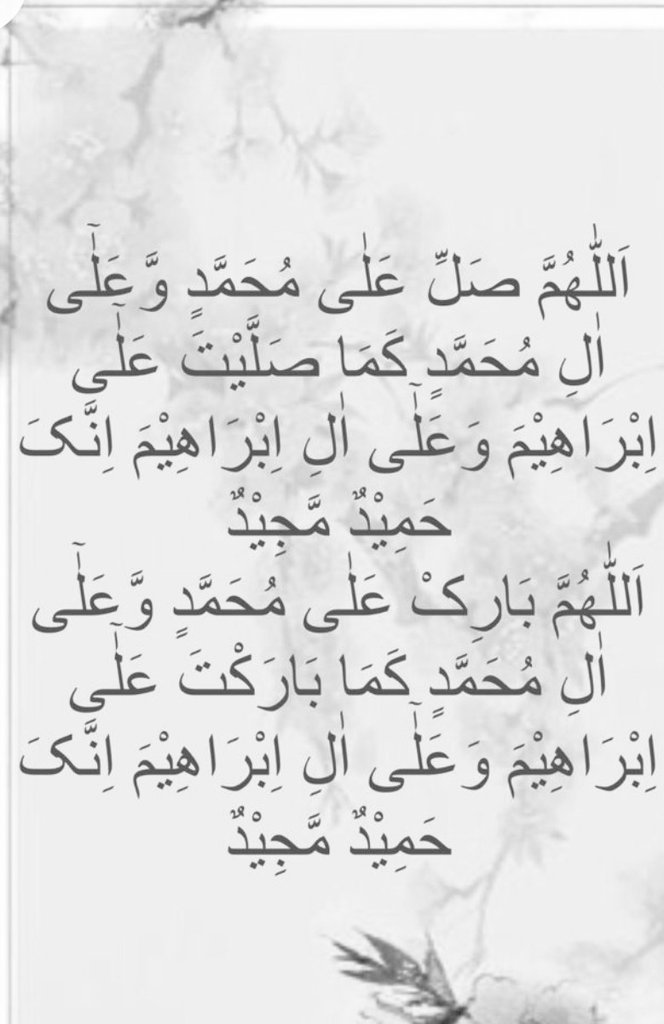 اَللّٰهُمَّ صَلِّ عَلٰى مُحَمَّدٍ وَّعَلٰٓى
اٰلِ مُحَمَّدٍ كَمَا صَلَّيْتَ عَلٰٓى
اِبْرَاهِيْمَ وَعَلٰٓى اٰلِ اِبْرَاهِيْمَ اِنَّکَ
حَمِيْدٌ مَّجِيْدٌ
اَللّٰهُمَّ بَارِکْ عَلٰى مُحَمَّدٍ وَّعَلٰٓى
اٰلِ مُحَمَّدٍ كَمَا بَارَكْتَ عَلٰٓى
اِبْرَاهِيْمَ وَعَلٰٓى اٰلِ اِبْرَاهِيْمَ اِنَّکَ
حَمِيْدٌ مَّجِيْدٌ